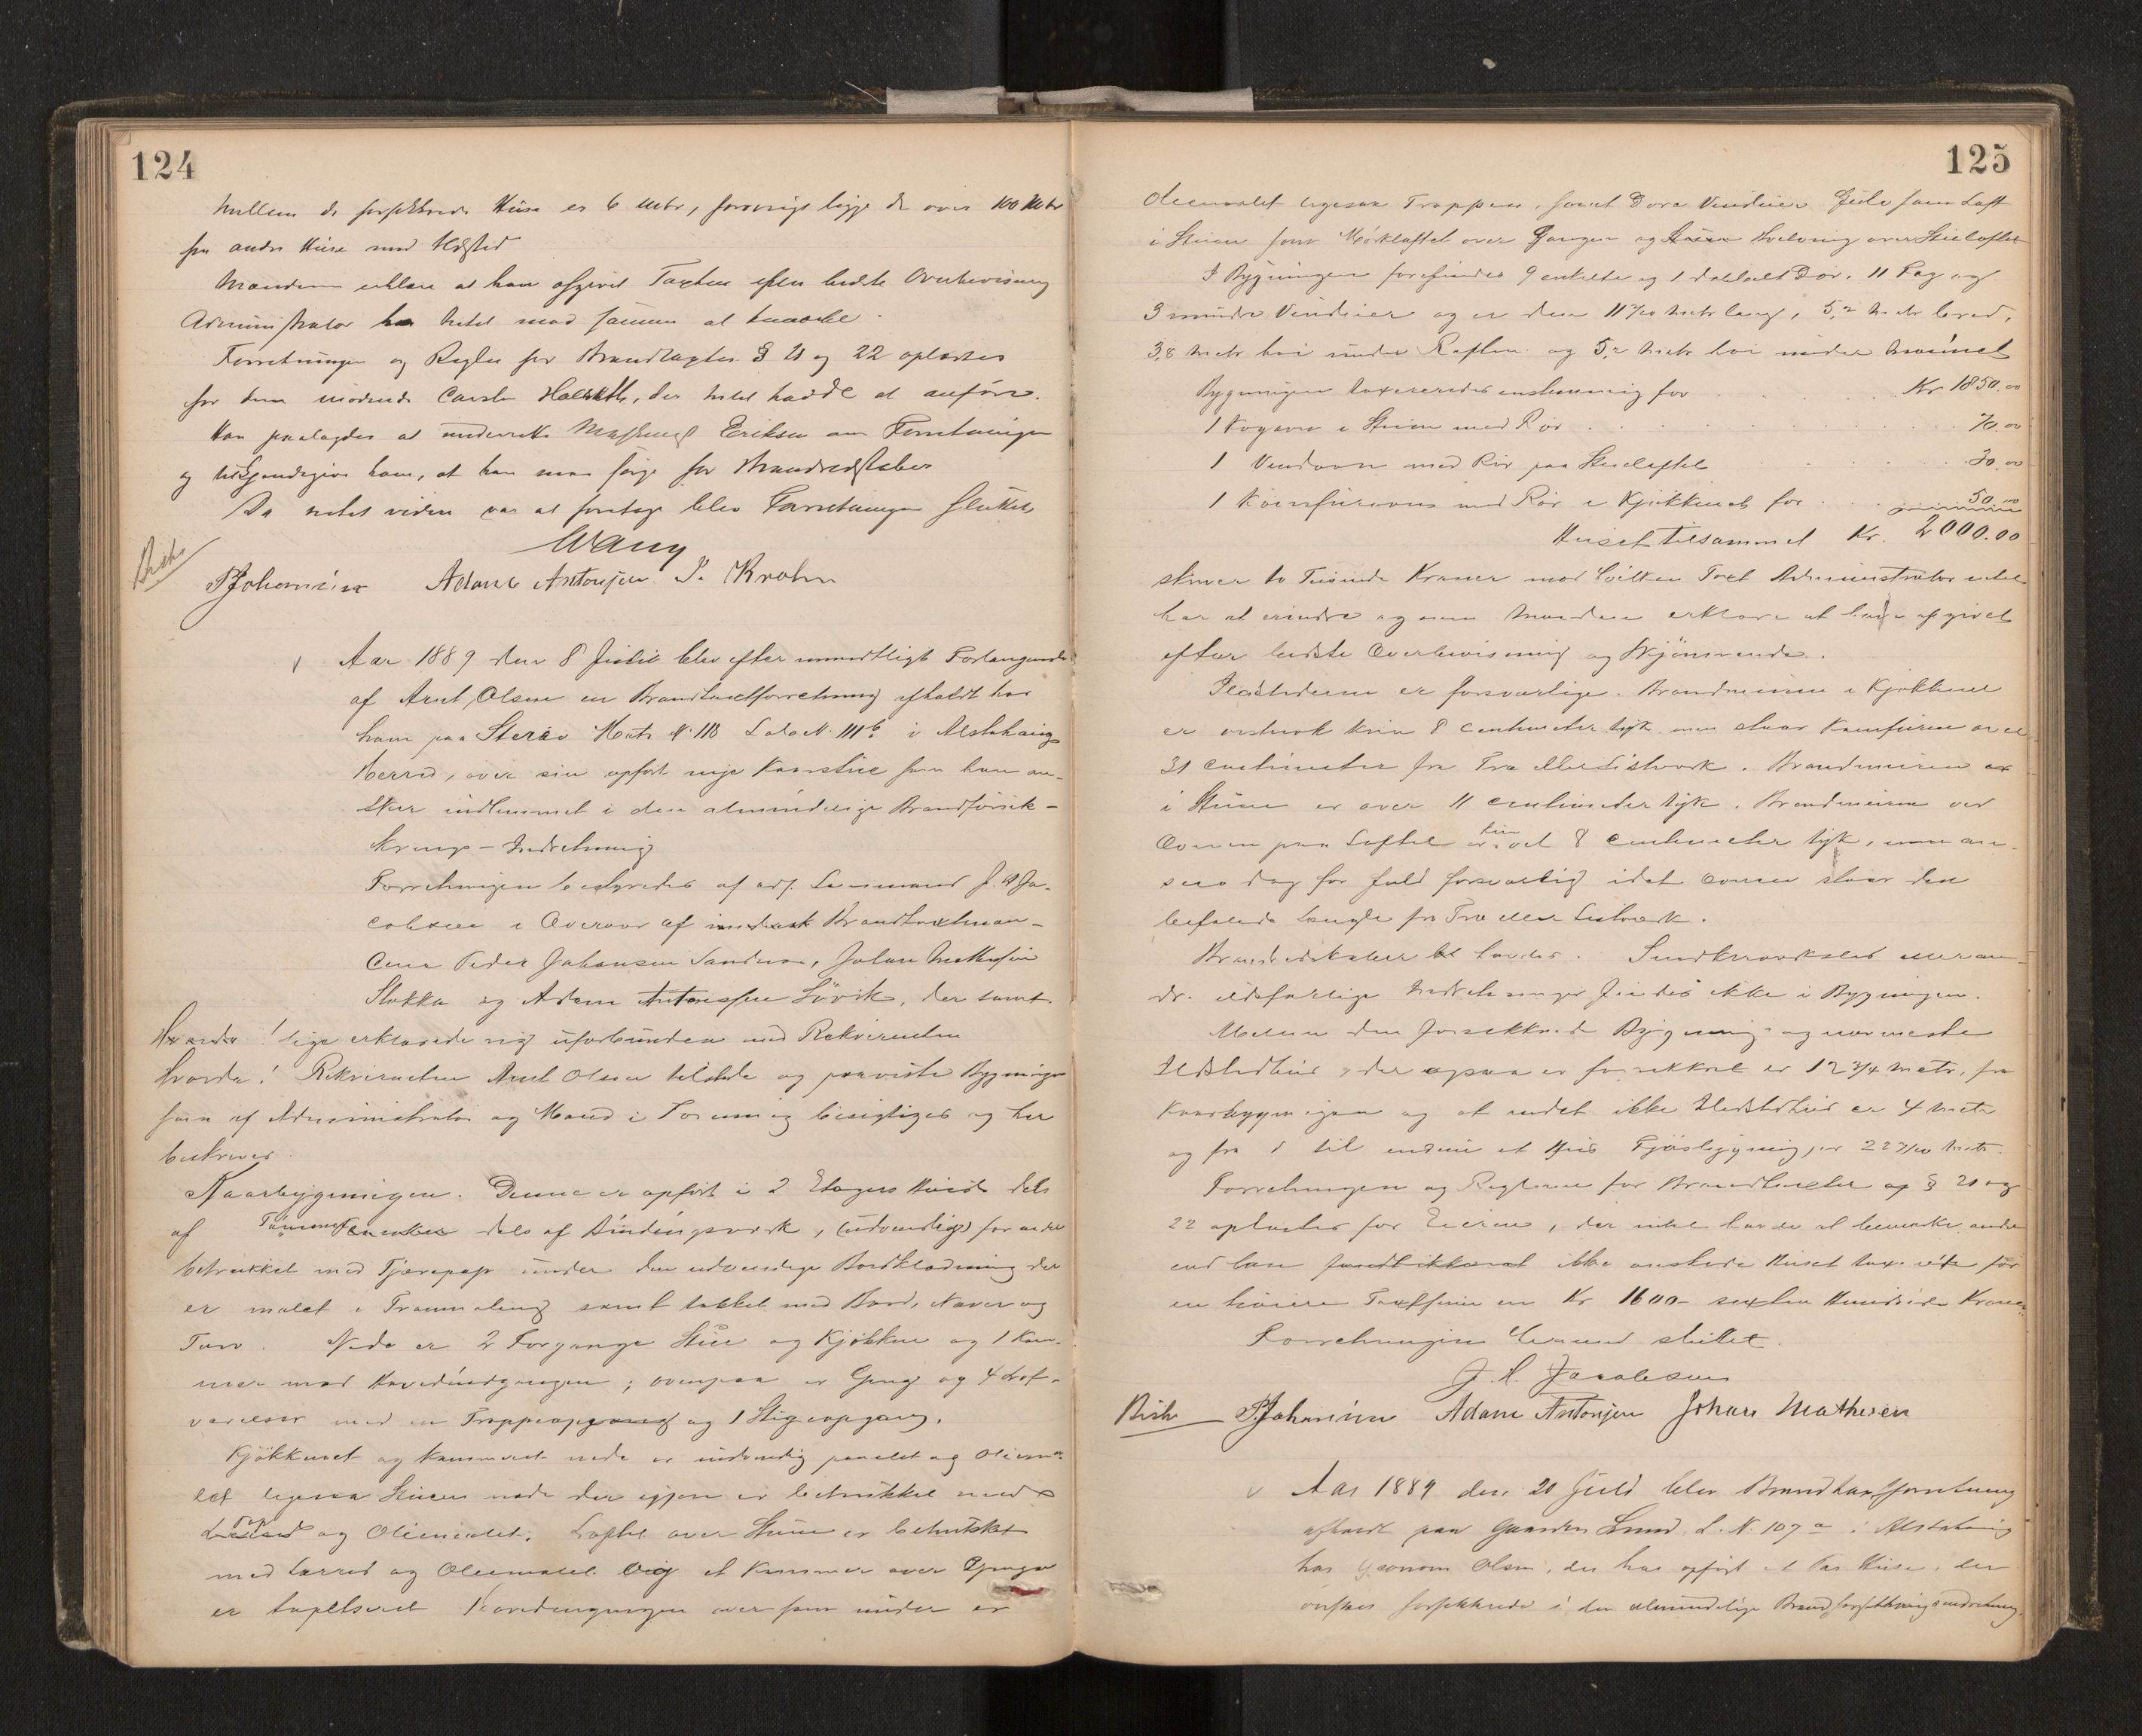 124
Mellem de forsikkrede Huse er 6 Meter, forøvrigt ligge de over 100 Meter
fra andre Huse med Ildsted
Mændene erklære at have afgivet Taxten efter bedste Overbevisning
Administrator har Intet mod samme at bemærke.
Forretningen og Regler for Brandtaxter § 21 og 22 oplæstes
for den mødende Carsten, der Intet havde at anføre.
Han paalagdes at underrette Eriksen om Forretningen
og tilkjendegive ham, at han maa sørge for Brandredskaber
Da intet videre var at foretage blev Forretningen sluttet
Wang
PJohansen Adam Antonsen J. Krohn
Aar 1889 den 8 Juli blev efter mundtligt Forlangende
af Arnt Olsen en Brandtaxtforretning afholdt hos
ham paa Sterøo Matr N. 118 Løbe N. 111 b i Alstahaug
Herred, over sin opført nye Kaarstue som han øn-
sker indlemmet i den almindelige Brandforsik-
krings-Indretning
Forretningen bestyredes af adj. Lensmand J. H Ja-
cobsen i Overvær af Brandtaxtmæn-
dene Peder Johansen Sandnes, Johan Mathesen
Stokka og Adam Antonsen Søvik, der samt-
lige erklærede sig uforbunden med Rekvirenten
Hvorda! Rekvirenten Arnt Olsen tilstede og paaviste Bygningen
som af Administrator og Mænd i Forening besigtiges og her
beskrives.
Kaarbygningen. Denne er opført i 2 Etagers Høide dels
af Tømmer dels af Bindingsværk, (udvendig) for en del
betrukket med Tjærepap under den udvendige Bordklædning der
er malet i Tranmaling samt tækket med Bord, Næver og
Torv. Nede er 2 Forgange Stue og Kjøkken og 1 Kam-
mer mod Hovedindgangen; ovenpaa er Gang og 4 Lof-
værelser med en Trappeopgang og 1 Stigeopgang.
Kjøkkenet og Kammeret nede er indvendig panelet og Oliema-
let ligesaa Stuen nede der igjen er betrukket med
og Oliemalet. Loftet over Stuen er betrukket
med Lærred og Oliemalet Og et Kammer over Gangen
er tapetseret Hovedengangen over som under er
125
Oliemalet ligesaa Trappen, samt Døre Vinduer Gule som Loft
i Stuen som Mørkloftet over Gangen og Hvelving over Stueloftet
I Bygningen forefindes 9 enkelte og 1 dobbelt Dør, 11 Fag og
3 mindre Vinduer og er den 11 7/10 Meter lang, 5,2 Meter bred,
3,8 Meter høi under Raften og 5,2 Meter høi under Mønet
Bygningen taxereredes enstemmig for Kr 1850.00
1 Kogovn i Stuen med Rør 70.00
1 Vindovn med Rør paa Stueloftet 30.00
1 Komfurovn med Rør i Kjøkkenet for 50.00
Huset tilsammen Kr. 2000.00
skriver to Tusinde Kroner mod hvilken Taxt Administrator intet
har at erindre og som Mændene erklære at have afgivet
efter bedste Overbevisning og Skjønnende.
Ildstederne er forsvarlige. Brandmuren i Kjøkkenet
er vistnok kun 8 centimeter tyk men staar Komfuren over
31 centimeter fra Træ eller Listværk. Brandmuren
i Stuen er over 11 centimeter tyk. Brandmuren ved
Ovnen paa Loftet er vel kun 8 centimeter tyk, men an-
sees dog for fuld forsvarlig idet Ovnen staar den
befalede Længde fra Træ eller Listværk.
Brandredskaber haves. Smidkeværksted eller an-
dr. ildsfarlige Indretninger findes ikke i Bygningen.
Mellem den forsikkrede Bygning og nærmeste
Ildstedhus, der ogsaa er forsikkret er 12 3/4 Meter, fra
Kaarbygningen og et andet ikke Ildstedhus er 4 Meter
og fra d til endnu et Hus Fjøsbygning, er 22 7/10 Meter.
Forretningen og Reglerne for Brandtaxter af § 21 og
22 oplæstes for Eieren, der intet havde at bemærke andet
end han ikke ønskede Huset taxeret for
en høiere Taxtsum en Kr 1600 - sexten Hundrede Kroner
Forretningen dermed sluttet.
J. H. Jacobsen
PJohansen Adam Antonsen Johan Mathesen
Aar 1889 den 20 Juli blev Brandtaxtforretning
afholdt paa Gaarden Lund L. N. 107 a i Alstahaug
hos Olsen, der har opført et Par Huse, der
ønskes forsikkrede i den almindelige Brandforsikkringsindretning.